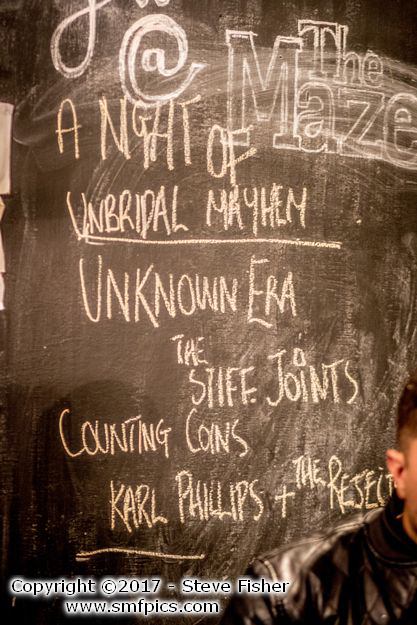 @ The
Maze
A NIGHT OF
UNBRIDAL MAYHEM
UNKNOWN ERA
THE
STIFF JOINTS
COUNTING COINS
KARL PHILLIPS + THE REJECT
Copyright ©2017 - Steve Fisher
www.smfpics.com